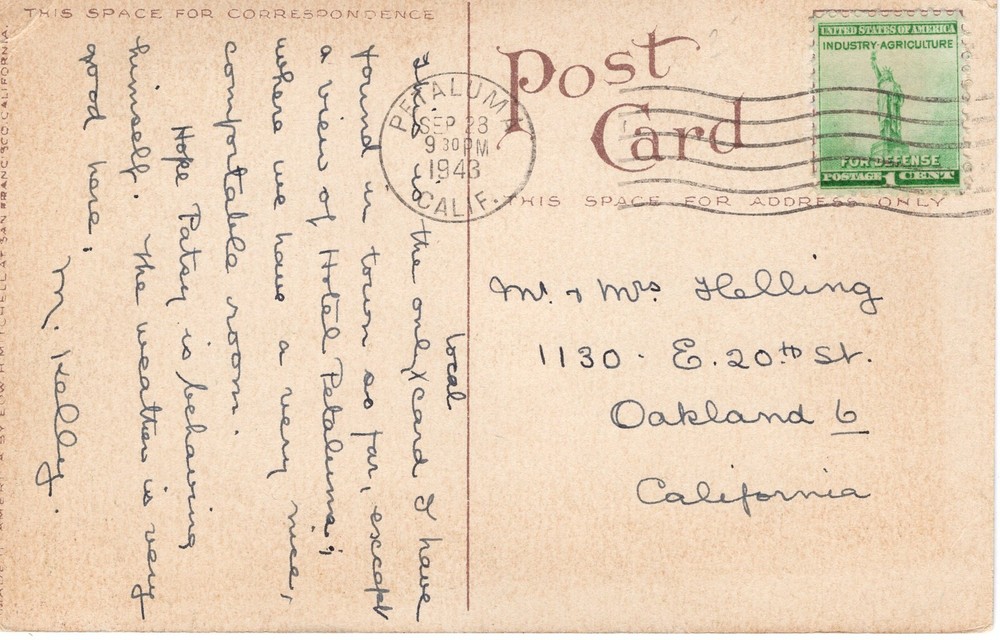 THIS SPACE FOR CORRESPONDENCE
Post
Card
UNITED STATES OF AMERICA
INDUSTRY·AGRICULTURE
FOR DEFENSE
POSTAGE 1 CENT
PETALUMA
SEP 23
9 30 PM
1943
CALIF.
THIS SPACE FOR ADDRESS ONLY
local
This is the only x card I have
found in town so far, except
a view of Hotel Petaluma;
where we have a very nice,
comfortable room.
Hope Patsy is behaving
himself. The weather is very
good here.
M. Kelly.
Mr. & Mrs Helling
1130 · E. 20th St.
Oakland 6
California
MITCHELL AT SAN FRANCISCO, CALIFORNIA